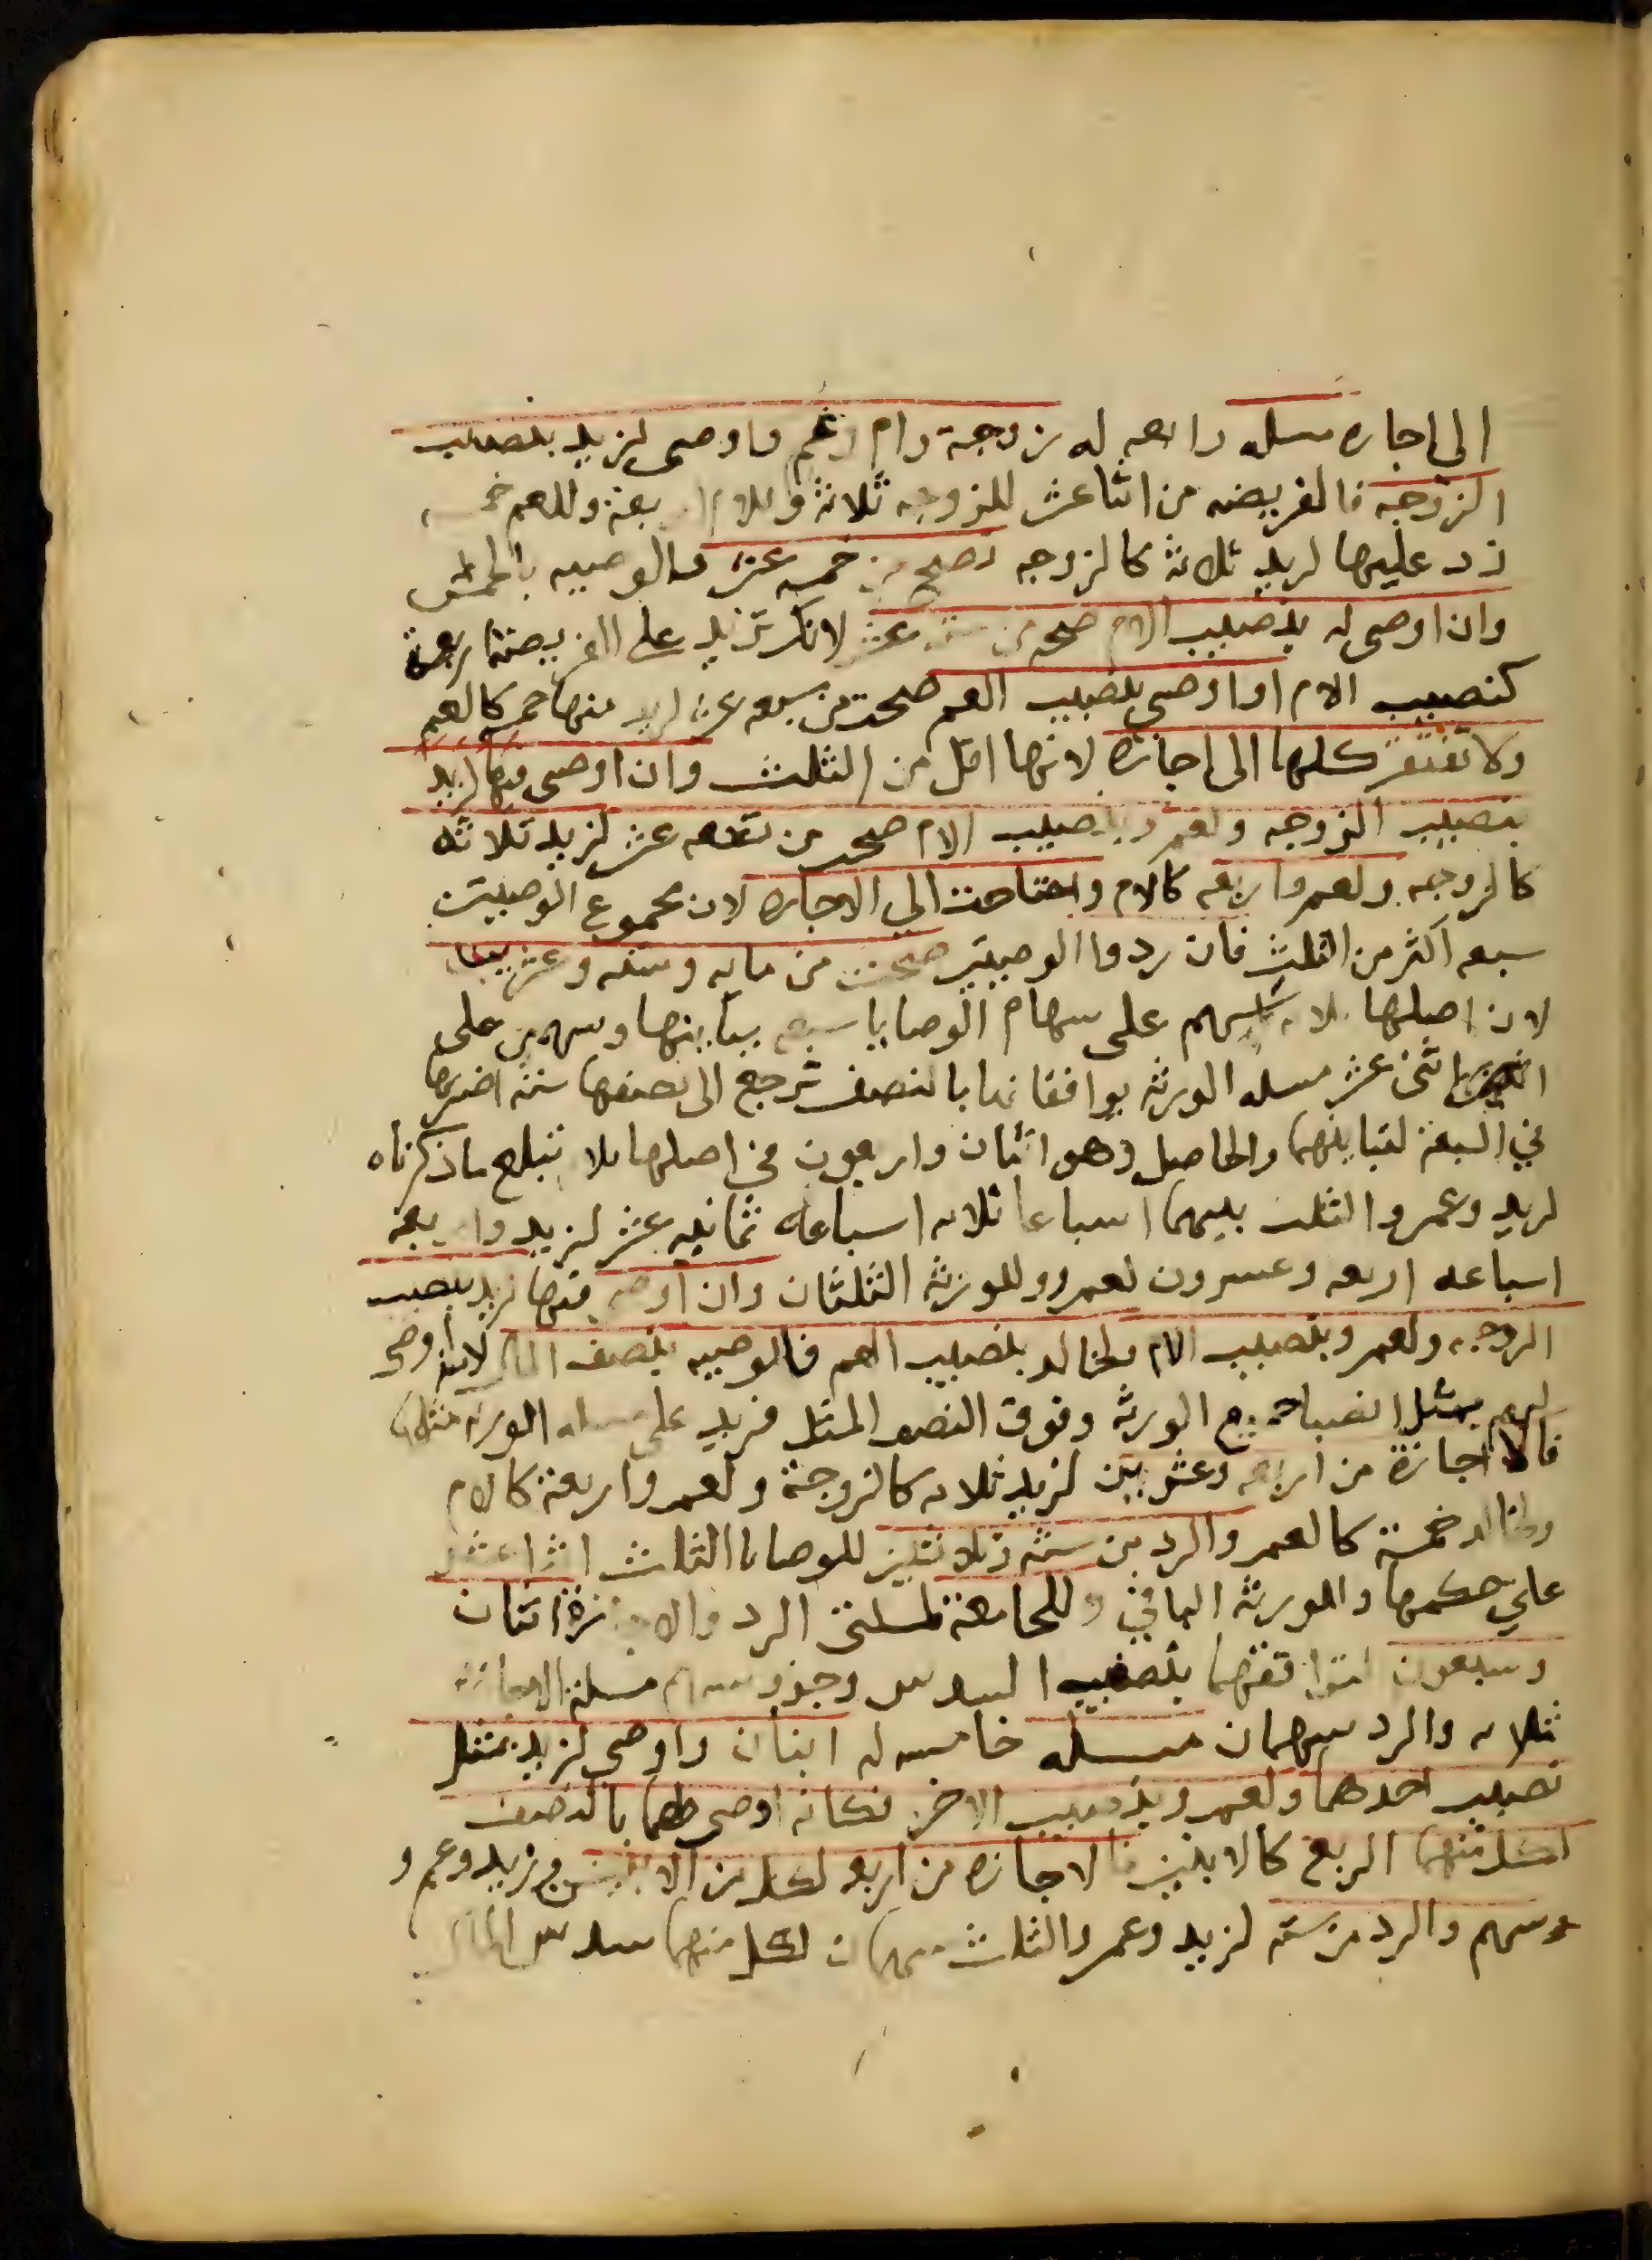 الى اجازه مسله رابعه له زوجة وام وعم واوصى لزيد بنصيب
الزوجه فالفريضه من اثنا عشر للزوجه ثلاثة وللام اربعة وللعم خمسه
زد عليها لزيد ثلاثة كالزوجه تصح من خمسه عشر فالوصيه بالخمس
وان اوصى له بنصيب الام صحت من ستة عشر لانك تزيد على الفريضة اربعة
كنصيب الام او اوصى بنصيب العم صحت من سبعه عشر لزيد منها خمسه كالعم
ولا تفتقر كلها الى اجازة لانها اقل من الثلث وان اوصى فيها لزيد
بنصيب الزوجه ولعمرو بنصيب الام صحت من تسعه عشر لزيد ثلاثه
كالزوجه ولعمرو اربعه كالام واحتاجت الى الاجازه لان مجموع الوصيتين
سبعه اكثر من الثلث فان ردوا الوصيتين صحت من مايه وسته وعشرين
لان اصلها ثلاثه سهم على سهام الوصايا سبعه يباينها وسهمين على
اثنى عشر مسله الورثه يوافقانها بالنصف ترجع الى نصفها ستة اضربها
في السبعة لتباينهما والحاصل وهو اثنان واربعون في اصلها ثلاثه تبلغ ما ذكرناه
لزيد وعمرو الثلث بينهما اسباعا ثلاثه اسباعه ثمانيه عشر لزيد واربعة
اسباعه اربعه وعشرون لعمرو وللورثه الثلثان وان اوصى فيها لزيد بنصيب
الزوجه ولعمرو بنصيب الام ولخالد بنصيب العم فالوصيه بنصف المال لانه اوصى
لهم بمثل انصبا جميع الورثه وفوق النصف المثل فزيد على مسله الورثه مثلها
فالاجازة من اربعه وعشرين لزيد ثلاثه كالزوجة ولعمرو اربعة كالام
ولخالد خمسة كالعم والرد من ستة وثلاثين للوصايا الثلث اثنا عشر
على حكمها وللورثه الباقي والجامعة لمسلتى الرد والاجازة اثنان
وسبعون لتوافقهما بنصف السدس وجزو سهم مسلة الاجازة
ثلاثه والرد سهمان مسله خامسه له ابنان واوصى لزيد بمثل
نصيب احدهما ولعمرو بنصيب الاخر فكانه اوصى لهما بالنصف
لكل منهما الربع كالابنين فالاجازه من اربعه لكل من الابنين وزيد وعمرو
سهم والرد من سته لزيد وعمرو الثلث سهمان لكل منهما سدس المال